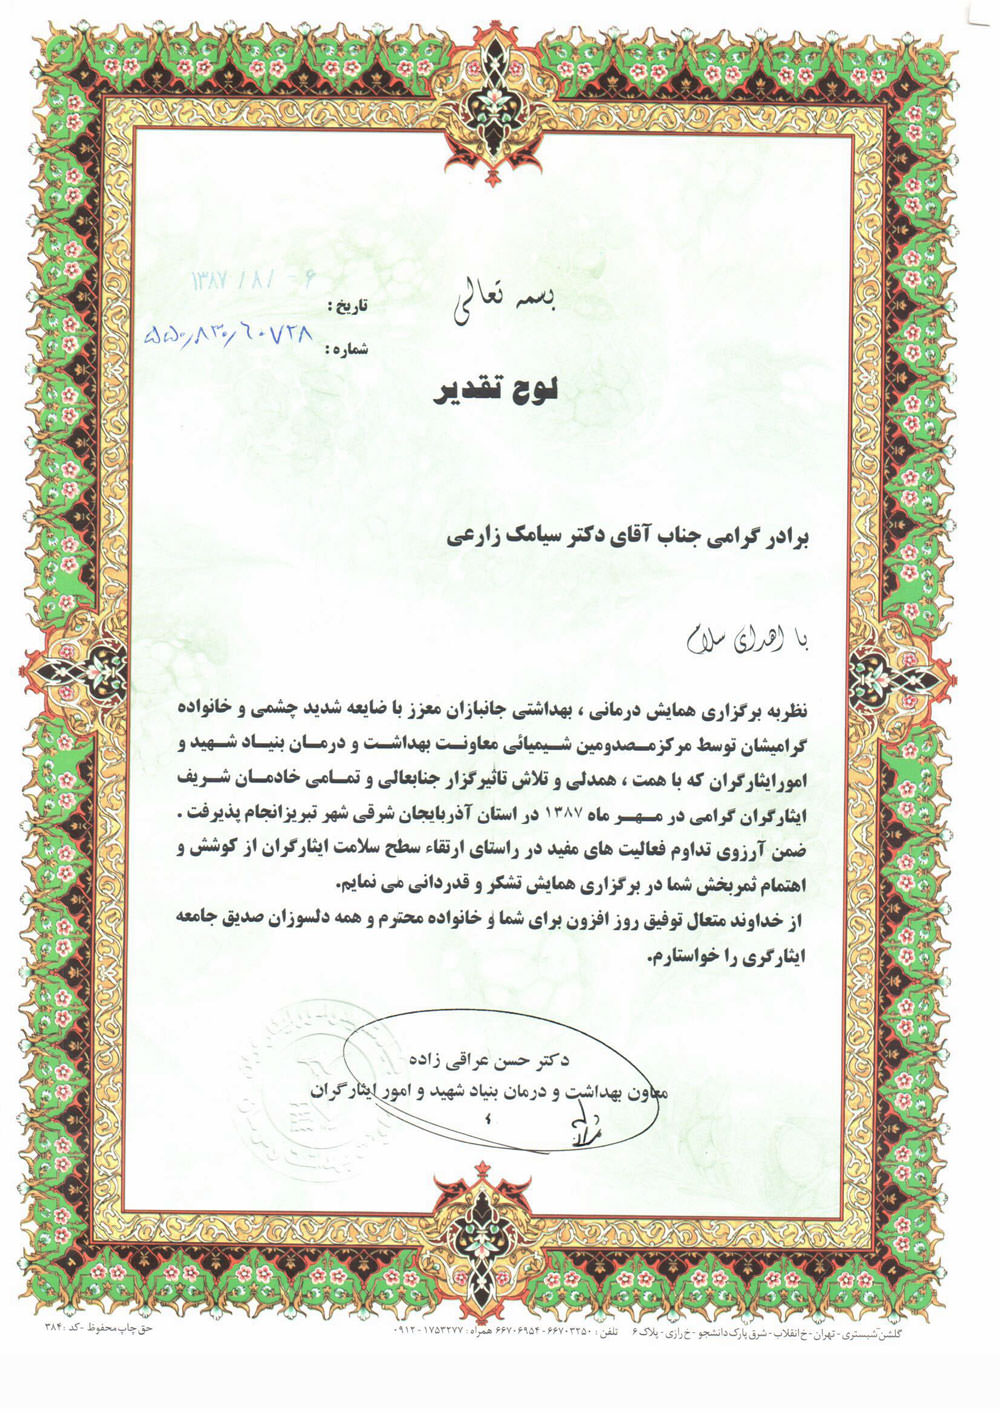 بسمه تعالی
تاریخ : ۱۳۸۷/۸/-۶
شماره : ۵۵۰/۸۳۰/۶۰۷۲۸
لوح تقدیر
برادر گرامی جناب آقای دکتر سیامک زارعی
با اهدای سلام
نظربه برگزاری همایش درمانی ، بهداشتی جانبازان معزز با ضایعه شدید چشمی و خانواده
گرامیشان توسط مرکزمصدومین شیمیائی معاونت بهداشت و درمان بنیاد شهید و
امورایثارگران که با همت ، همدلی و تلاش تاثیرگزار جنابعالی و تمامی خادمان شریف
ایثارگران گرامی در مهر ماه ۱۳۸۷ در استان آذربایجان شرقی شهر تبریزانجام پذیرفت .
ضمن آرزوی تداوم فعالیت های مفید در راستای ارتقاء سطح سلامت ایثارگران از کوشش و
اهتمام ثمربخش شما در برگزاری همایش تشکر و قدردانی می نمایم.
از خداوند متعال توفیق روز افزون برای شما و خانواده محترم و همه دلسوزان صدیق جامعه
ایثارگری را خواستارم.
دکتر حسن عراقی زاده
معاون بهداشت و درمان بنیاد شهید و امور ایثارگران
گلشن شبستری - تهران - خ انقلاب - شرق پارک دانشجو - خ رازی - پلاک ۶ تلفن : ۶۶۷۰۳۲۵۰ - ۶۶۷۰۶۹۵۴ همراه : ۱۷۵۳۲۷۷-۰۹۱۲
حق چاپ محفوظ - کد : ۳۸۴